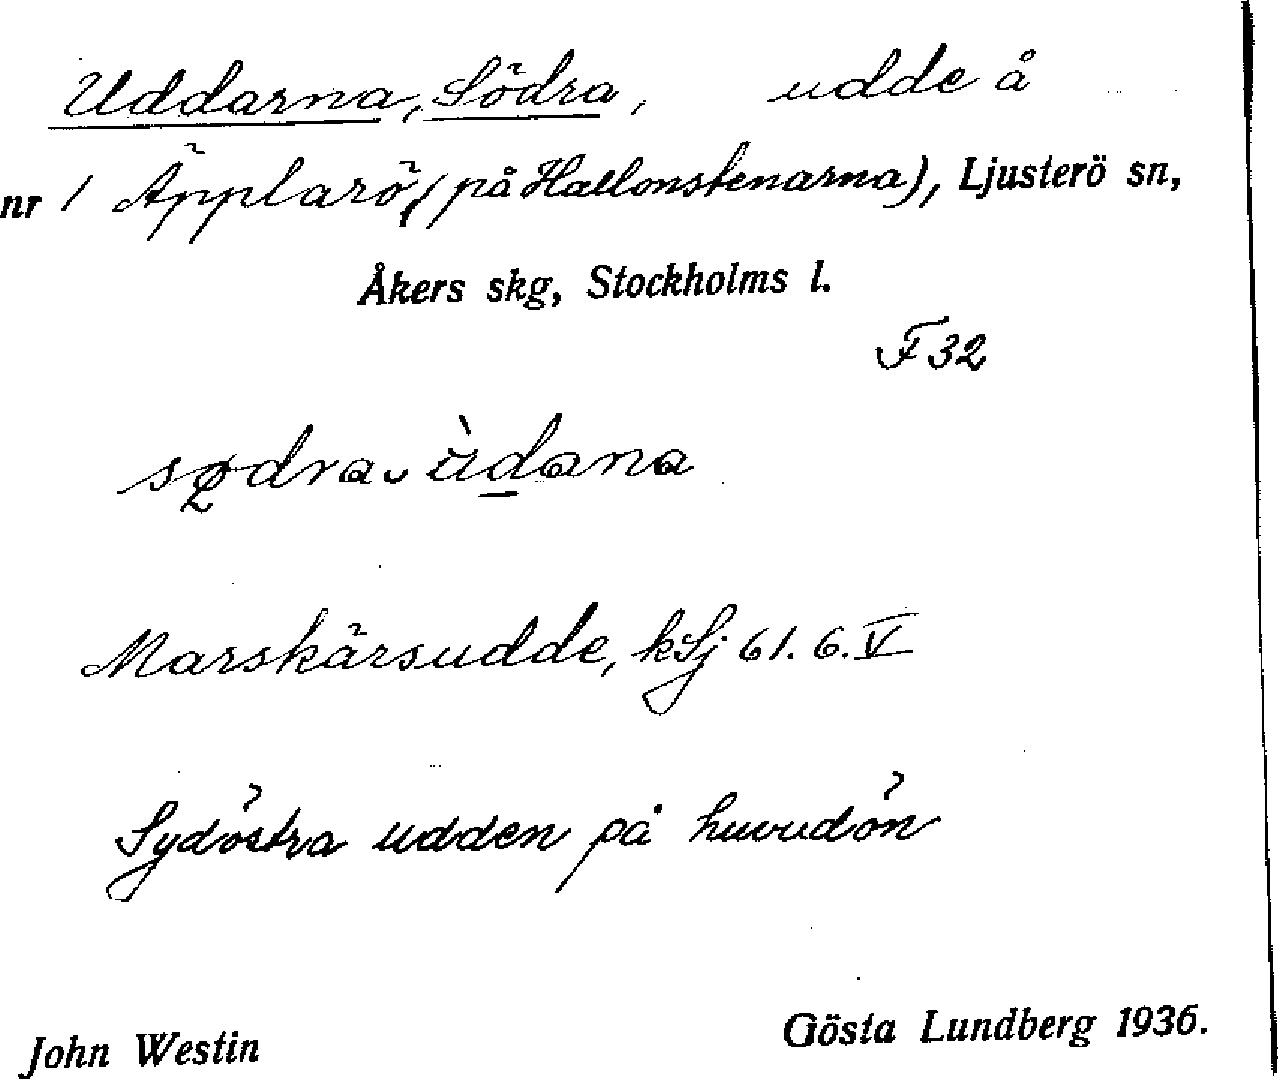 Uddarna, Södra, udde å
nr 1 Äpplarö, (på Hallonstenarna), Ljusterö sn,
Åkers skg, Stockholms l.
F 32
Marskärsudde, kSj 61. 6. V
Sydöstra udden på huvudön
John Westin Gösta Lundberg 1936.